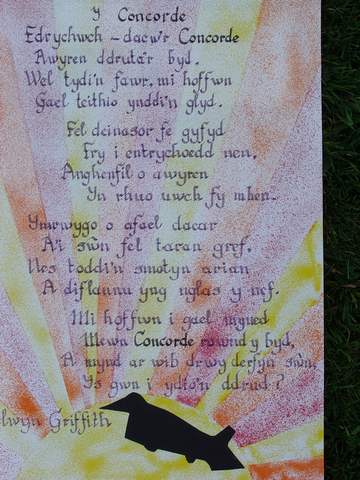 Y Concorde
Edrychwch - dacw'r Concorde
Awyren ddruta'r byd.
Wel tydi'n fawr, mi hoffwn
Gael teithio ynddi'n glyd.
Fel deinasor fe gyfyd
Fry i entrychoedd nen,
Anghenfil o awyren
Yn rhuo uwch fy mhen.
Ymrwygo o afael daear
A'i sŵn fel taran gref,
Nes toddi'n smotyn arian
A diflannu yng nglas y nef.
Mi hoffwn i gael myned
Mewn Concorde rownd y byd,
A mynd ar wib drwy derfyn sŵn,
Ys gwn i ydio'n ddrud?
lwyn Griffith